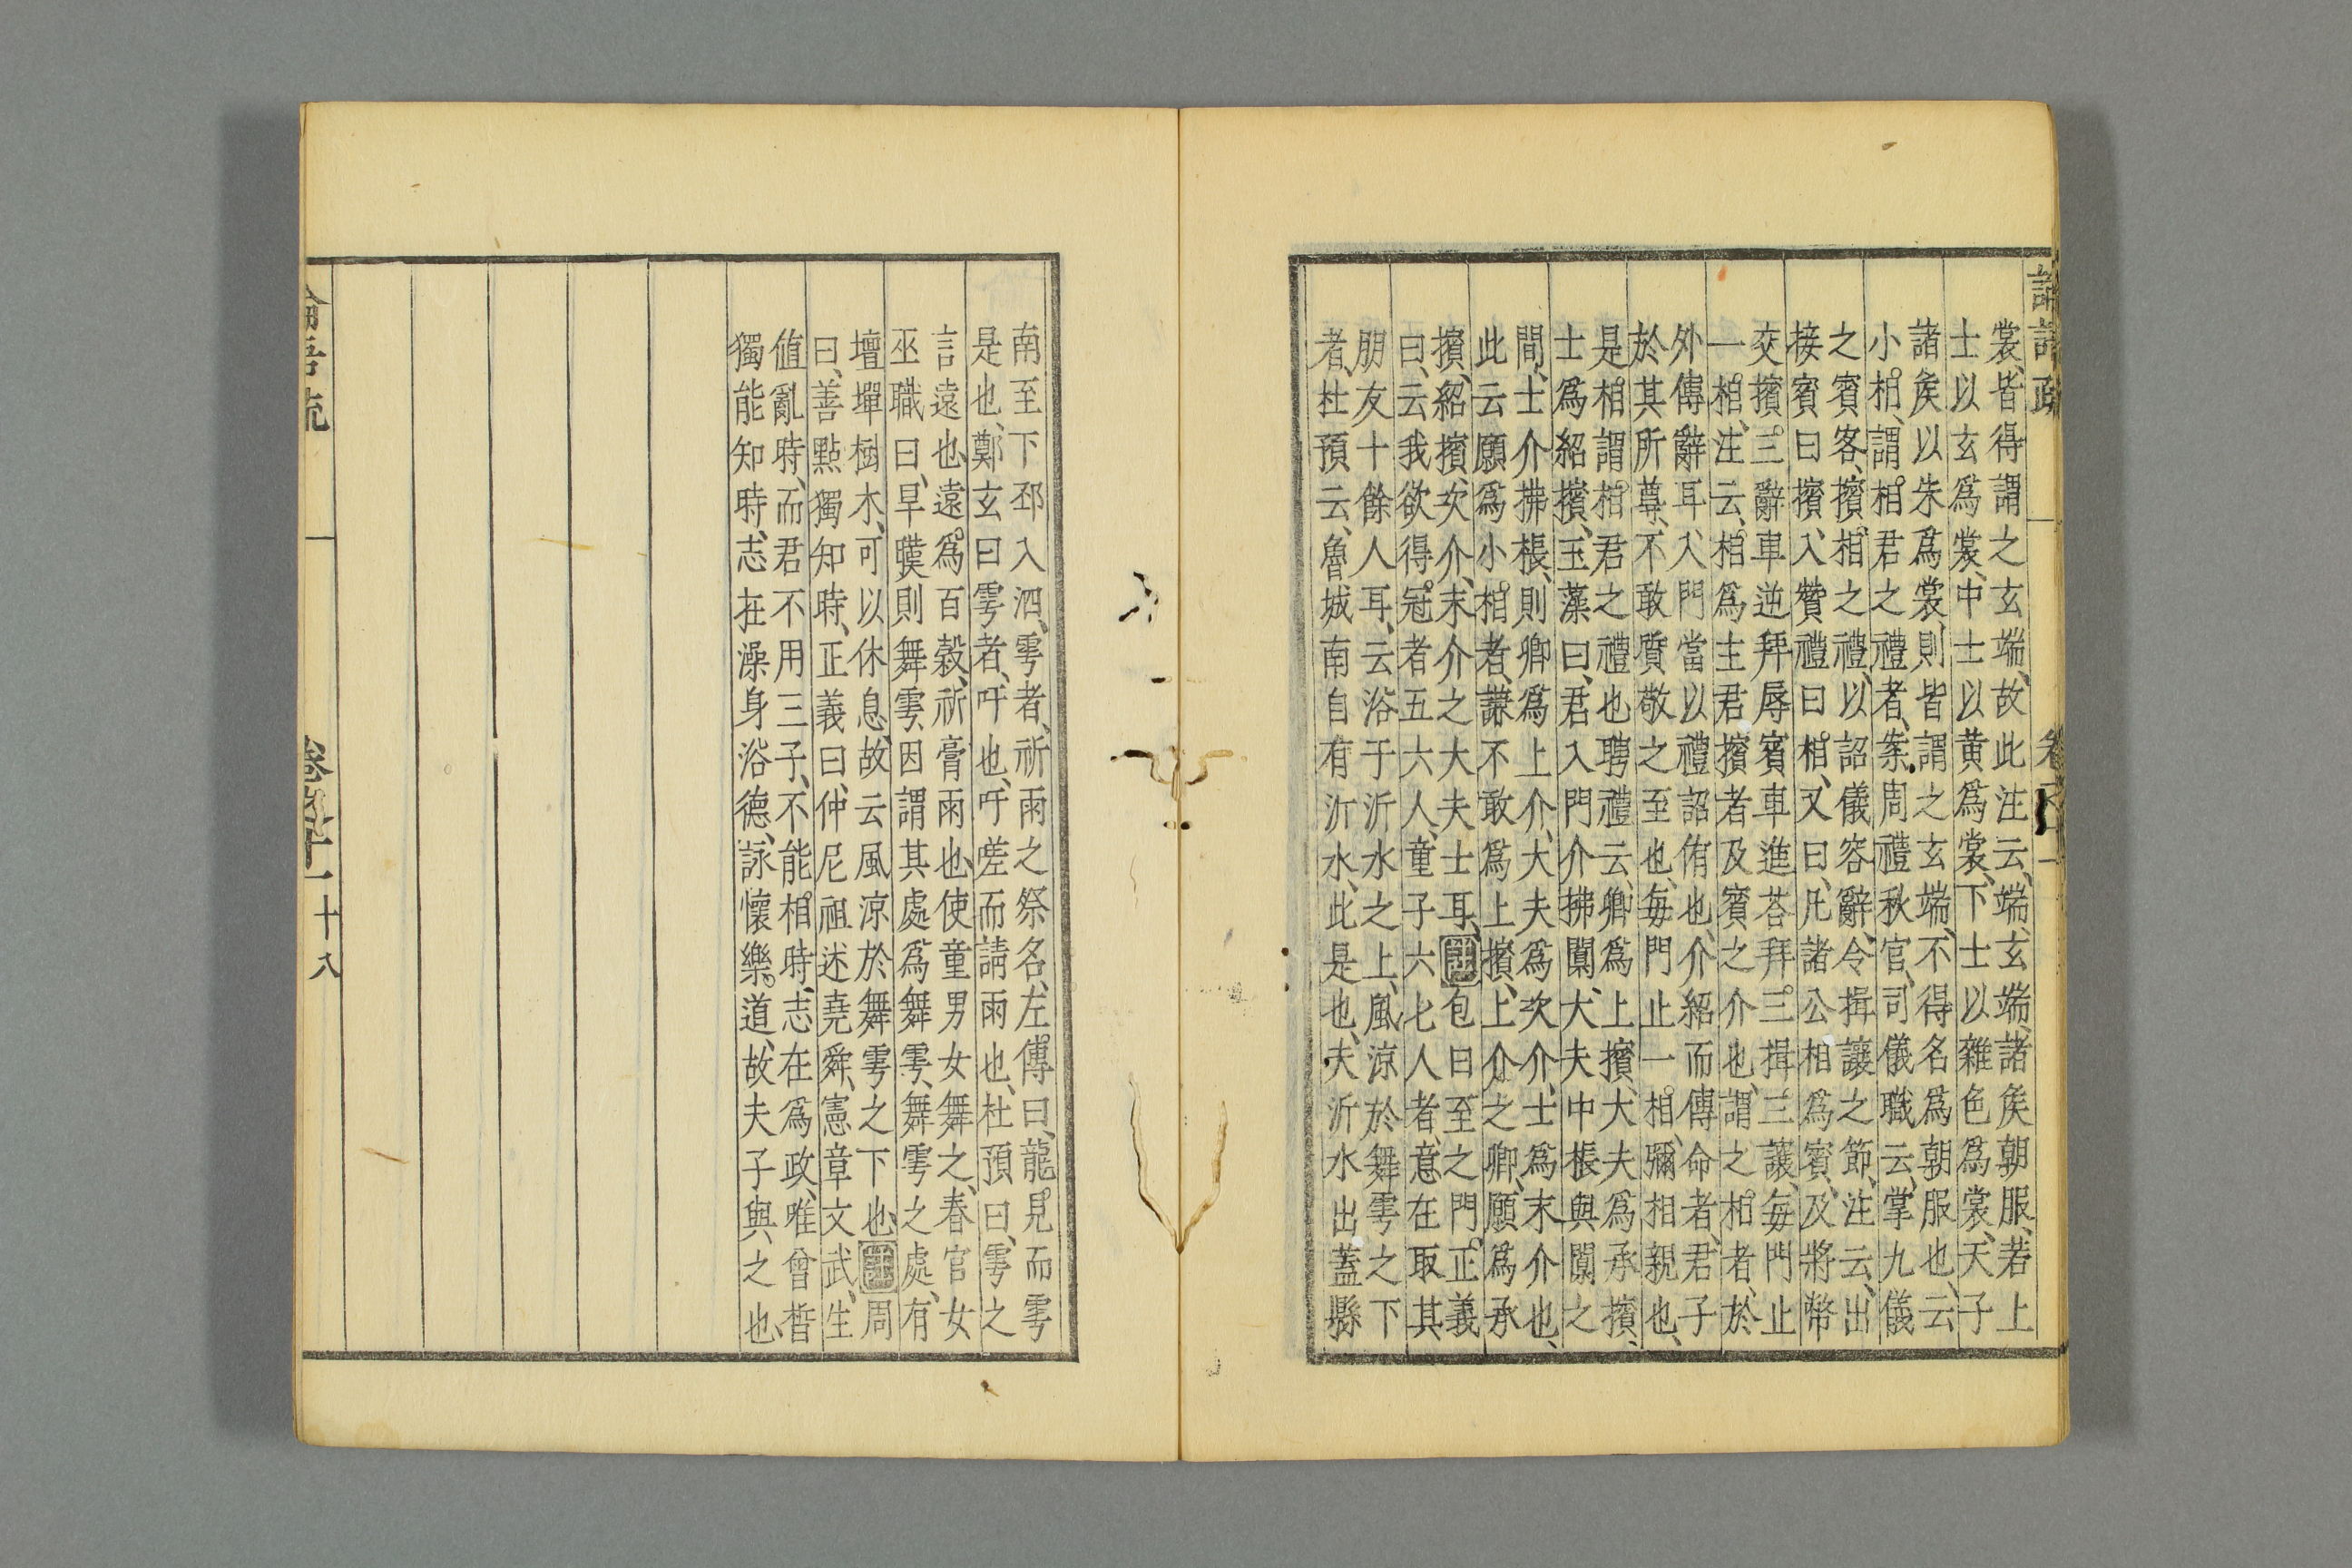 裳、皆得謂之玄端、故此注云、端、玄端、諸矦朝服、若上
士以玄爲裳、中士以黄爲裳、下士以雜色爲裳、天子
諸矦以朱爲裳、則皆謂之玄端、不得名爲朝服也、云
小相、謂相君之禮者、案周禮秋官、司儀職云、掌九儀
之賓客、擯相之禮、以詔儀容辭、令揖讓之節、注云、出
接賓曰擯、入贊禮曰相、又曰、凡諸公相爲賓、及將幣
交擯三辭車逆拜辱賓車進荅拜三揖三讓、每門止
一相、注云、相爲主君擯者及賓之介也、謂之相者、於
外傳辭耳、入門當以禮詔侑也、介紹而傳命者、君子
於其所尊、不敢質敬之至也、每門止一相、彌相親也、
是相謂相君之禮也聘禮云、卿爲上擯、大夫爲承擯、
士爲紹擯、玉藻曰、君入門介拂闑、大夫中棖與闑之
間、士介拂棖、則卿爲上介、大夫爲次介、士爲末介也、
此云願爲小相者、謙不敢爲上擯、上介之卿、願爲承
擯、紹擯、次介、末介之大夫士耳、註包曰至之門、正義
曰、云我欲得冠者五六人、童子六七人者、意在取其
朋友十餘人耳、云浴于沂水之上、風涼於舞雩之下
者、杜預云、魯城南自有沂水、此是也、夫沂水出蓋縣
南至下邳入泗、雩者、祈雨之祭名、左傳曰、龍見而雩
是也、鄭玄曰雩者、吁也、吁嗟而請雨也、杜預曰、雩之
言遠也、遠爲百榖、祈膏雨也、使童男女舞之、春官女
巫職曰、旱暵則舞雩、因謂其處爲舞雩、舞雩之處、有
壇墠樹木、可以休息、故云風涼於舞雩之下也、註周
曰、善點獨知時、正義曰、仲尼祖述堯舜、憲章文武、生
値亂時、而君不用三子、不能相時、志在爲政、唯曾晳
獨能知時、志在澡身浴德、詠懷樂道、故夫子與之也、
十八